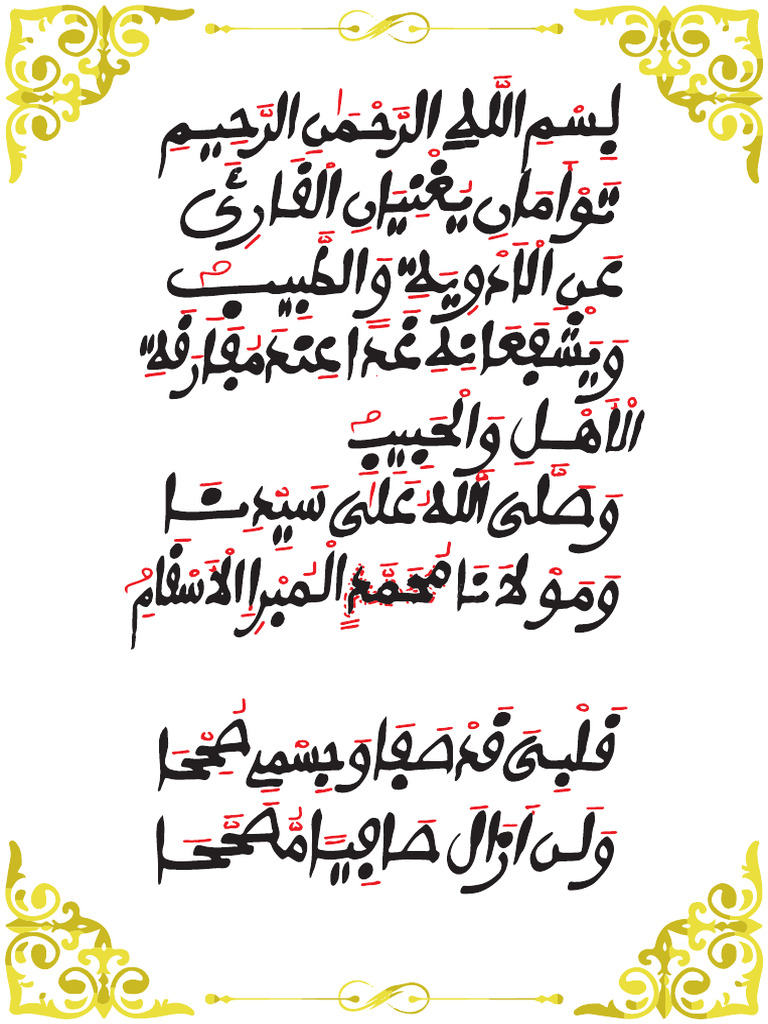 بِسْمِ اللَّهِ الرَّحْمَٰنِ الرَّحِيمِ
تَوْأَمَانِ يُغْنِيَانِ الْقَارِئَ
عَنِ الْأَدْوِيَةِ وَالطَّبِيبُ
وَيَشْفَعَانِهِ غَدًا عِنْدَ مُفَارَقَةِ
الْأَهْلِ وَالْحَبِيبُ
وَصَلَّى اللَّهُ عَلَى سَيِّدِنَا
وَمَوْلَانَا مُحَمَّدٍ الْمُبْرِإِ الْأَسْقَامُ
قَلْبِيَ قَدْ صَفَا وَجِسْمِي صُحِّحَا
وَلَن أَزَالَ صَافِيًا مُّصَحَّحَا